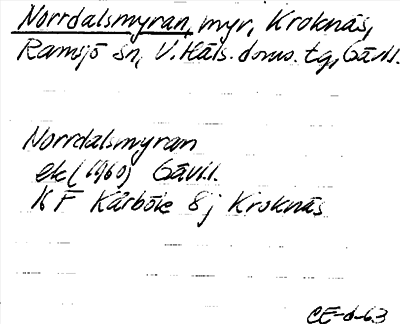 Norrdalsmyran, myr, Kroknäs,
Ramsjö sn, V. Häls. doms. tg, Gävl.l.
Norrdalsmyran
ek (1960) Gävl.l.
K F Kårböle 8j Kroknäs
CE-d-63